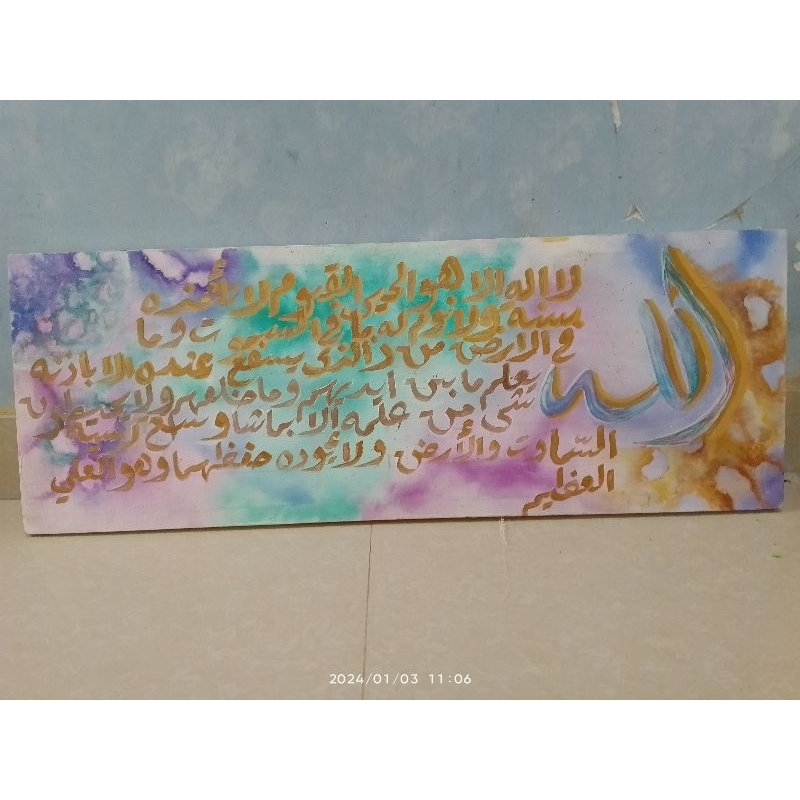 الله
لا اله الا هو الحي القيوم لا تأخذه
سنة ولا نوم له ما في السموت وما
في الارض من ذالذى يشفع عنده الا باذنه
يعلم ما بين ايديهم وما خلفهم ولا يحيطون
شى من علمه إلا بما شا وسع كرسيه
السّماوت والأرض ولا يئوده حفظهما وهو العلي
العظيم
2024/01/03 11:06